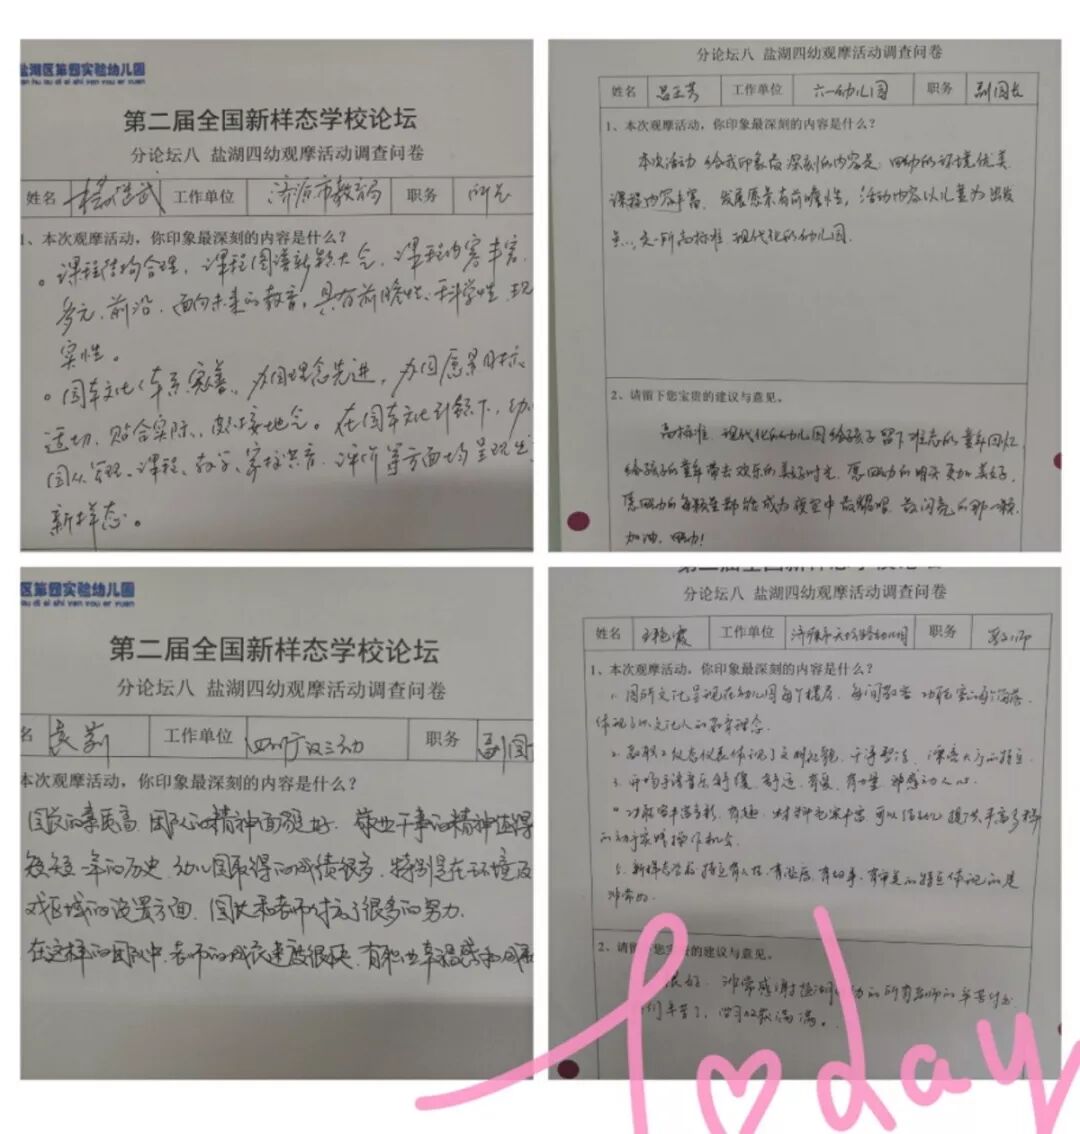 盐湖区第四实验幼儿园
第二届全国新样态学校论坛
分论坛八 盐湖四幼观摩活动调查问卷
姓名 工作单位 济源市教育局 职务
1、本次观摩活动，你印象最深刻的内容是什么？
。课程结构合理，课程图谱新颖大气，课程内容丰富
多元、前沿，面向未来的教育，具有前瞻性、科学性、现
实性。
。园本文化体系完善，办园理念先进，办园愿景目标
适切，贴合实际，接地气。在园本文化引领下，幼
园从管理、课程、教学、家校共育、评价等方面均呈现出
新样态。
分论坛八 盐湖四幼观摩活动调查问卷
姓名 吕玉芳 工作单位 六一幼儿园 职务 副园长
1、本次观摩活动，你印象最深刻的内容是什么？
本次活动给我印象最深刻的内容是：四幼的环境优美
课程内容丰富、发展愿景有前瞻性，活动内容以儿童为出发
点...是一所高标准、现代化的幼儿园.
2、请留下您宝贵的建议与意见。
高标准、现代化的幼儿园给孩子留下难忘的童年回忆
给孩子的童年带去欢乐的美好时光. 愿四幼的明天更加美好,
愿四幼的每颗星都能成为夜空中最耀眼、最闪亮的那一颗.
加油. 四幼!
区第四实验幼儿园
第二届全国新样态学校论坛
分论坛八 盐湖四幼观摩活动调查问卷
名 袁 工作单位 职务 副园
本次观摩活动，你印象最深刻的内容是什么？
园长的素质高. 团队的精神面貌好. 敬业干事的精神值得
短短一年的历史. 幼儿园取得的成绩很多. 特别是在环境及
戏区域的设置方面. 园长和老师付出了很多的努力.
在这样的团队中. 老师的成长速度很快. 有职业幸福感和
第二届全国新样态学校论坛
分论坛八 盐湖四幼观摩活动调查问卷
姓名 王艳霞 工作单位 济源市天坛路幼儿园 职务 教师
1、本次观摩活动，你印象最深刻的内容是什么？
1. 园所文化呈现在幼儿园每个楼层、每间教室、功能室的每个角落.
体现了以文化人的教育理念.
2. 教职工仪态仪表体现了文明礼貌、干净整洁、漂亮大方的特点.
3. 开场手语音乐舒缓、舒适、有爱、有力量. 很感动人心.
功能室丰富多彩、有趣. 材料也很丰富 可以给幼儿提供丰富多样
的动手实践操作机会.
5. 新样态学校特点有人性、有温度、有故事、有审美的特点体现的是
非常好.
2、请留下您宝贵的建议与意见。
很好. 非常感谢盐湖四幼的所有老师的辛苦付出
们辛苦了, 学习收获满满。
Today